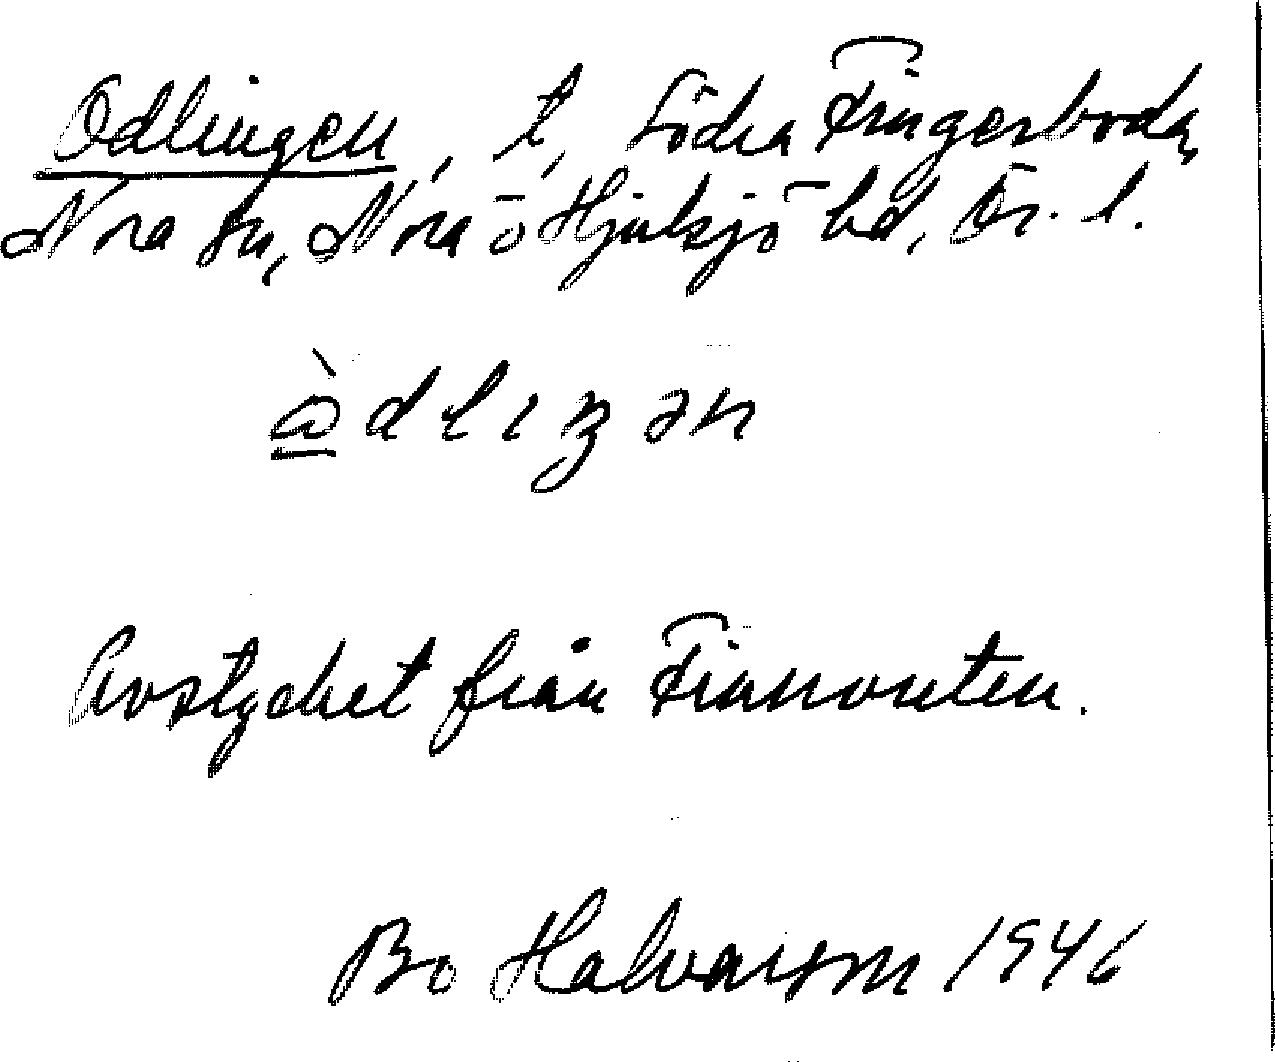 Odlingen, t, Södra Fingerboda,
Nora sn, Nora o Hjulsjö bd, Ör. l.
ɷ̀dlıŋən
Avstycket från Finnvreten.
Bo Halvarson 1946